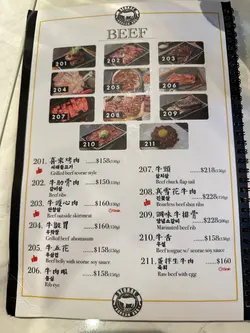 BEEF
201
202
203
204
205
206
207
208
209
210
211
201. 喜家烤肉 $158(130g)
Grilled beef sesame style
202. 牛肋骨肉 $158(130g)
갈비살
Beef ribs
203. 牛護心肉 $158(130g)
안창살
Beef outside skirtmeat
204. 牛
Grilled beef abomasum
205. 牛五花 $158(130g)
우삼겹
Beef belly with sesame soy sauce
206. 牛肉眼
등심
Rib eye
207. 牛頸 $218(120g)
살치살
Beef chuck flap tail
208. 真雪花牛肉 $228(120g)
진꽃살
Boneless beef shin ribs
209. 調味牛排骨 $218
양념소갈비
Marinated beef rib
210. 牛舌 $158
우설
Beef tongue w/ sesame soy sauce
211. 蛋拌生牛肉 $160
육회
Raw beef with egg